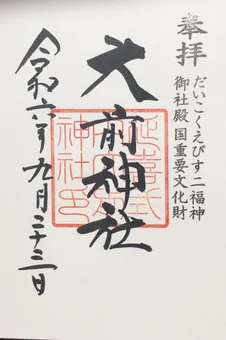 奉拝
だいこくえびす二福神
御社殿 国重要文化財
大前神社
延喜式
神社印
令和六年九月二十三日